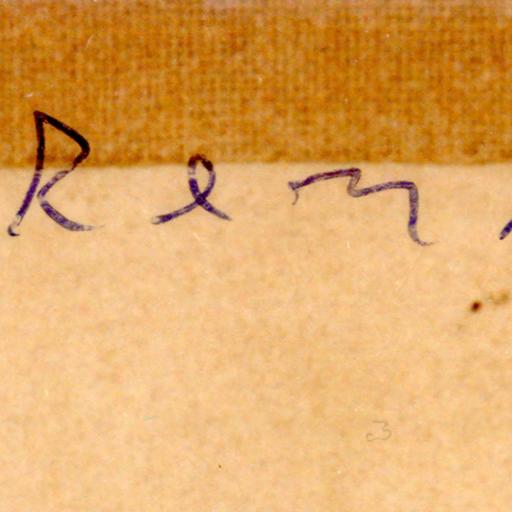 Rem
3